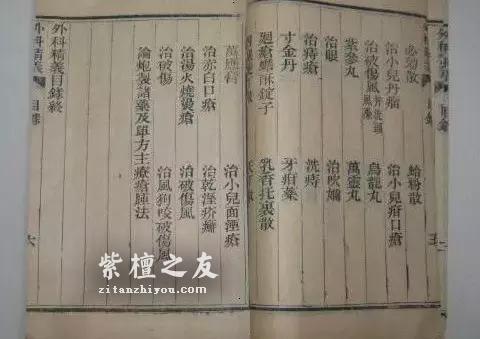 必勝散 蛤粉散
治小兒丹瘤 治小兒疳口瘡
治破傷風 烏龍丸
紫參丸 萬靈丸
治眼 治吹嬭
治痔瘡 洗痔
寸金丹 牙疳藥
乳香托裏散
萬應膏 治小兒面湮瘡
治赤白口瘡 治乾溼疥癬
治湯火燒燙瘡 治破傷風
治破傷 治風狗咬破傷風
論炮製諸藥及單方主療瘡腫法
外科精義目錄終
外科精義 目錄 六
紫檀之友
zitanzhiyou.com